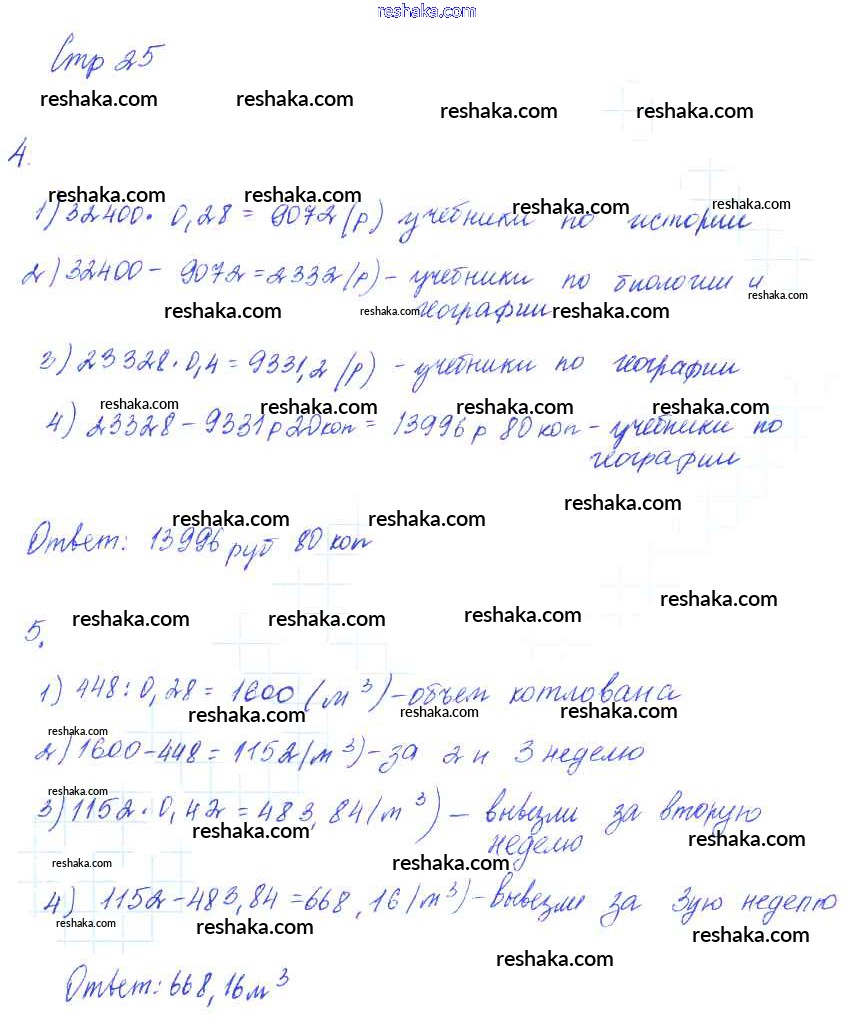 reshaka.com
Стр 25
reshaka.com reshaka.com reshaka.com reshaka.com
4.
reshaka.com reshaka.com reshaka.com reshaka.com
1) 32400 · 0,28 = 9072 (р) учебники по истории
2) 32400 - 9072 = 2332 (р) - учебники по биологии и
reshaka.com
географии
reshaka.com reshaka.com reshaka.com
3) 23328 · 0,4 = 9331,2 (р) - учебники по географии
reshaka.com reshaka.com reshaka.com reshaka.com
4) 23328 - 9331р 20коп = 13996 р 80 коп - учебники по
географии
reshaka.com
reshaka.com reshaka.com
Ответ: 13996 руб 80 коп
reshaka.com
5. reshaka.com reshaka.com reshaka.com
1) 448 : 0,28 = 1600 (м³) - объем котлована
reshaka.com reshaka.com reshaka.com
reshaka.com
2) 1600 - 448 = 1152 (м³) - за 2 и 3 неделю
reshaka.com
3) 1152 · 0,42 = 483,84 (м³) - вывезли за вторую
reshaka.com reshaka.com
неделю
reshaka.com reshaka.com
4) 1152 - 483,84 = 668,16 (м³) - вывезли за 3ую неделю
reshaka.com reshaka.com
reshaka.com
Ответ: 668,16 м³